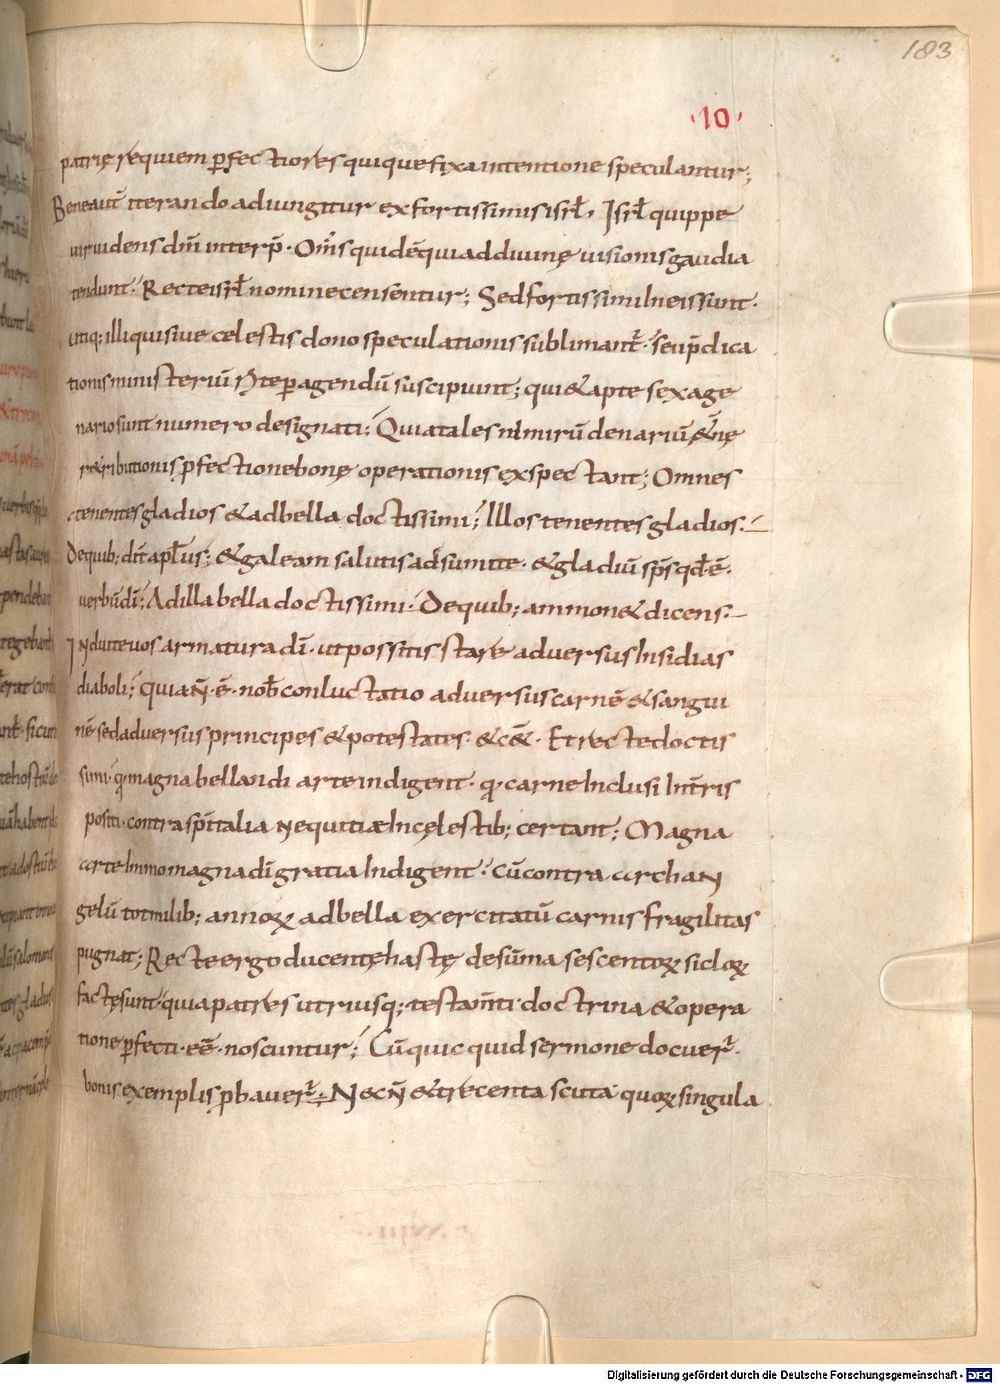 183
·10·
patrię requiem p̄fectiores quique fixa intentione speculantur;
Beneaut̄ iterando adiungitur ex fortissimis isrł, Isrł quippe
uir uidens dm̄ interp̄. Om̄s quidē qui ad diuinę uisionis gaudia
tendunt. Recte isrł nomine censentur; Sed fortissimi In eis sunt.
utiq; illi qui siue celestis dono speculationis sublimant̄. seu p̄dica
tionis ministeriū rite peragendū suscipiunt; qui & apte sexage
nario sunt numero designati; Quia tales nimirū denariū
r&ributionis p̄fectione bonę operationis exspectant; Omnes
tenentes gladios & ad bella doctissimi; Illos tenentes gladios.
De quib; dic̄ apłus; & galeam salutis adsumite. & gladiū sp̄s qd̄ ē.
uerbū dī; Ad illa bella doctissimi. De quib; ammon& dicens.
Induite uos armatura dī. ut possitis stare aduersus Insidias
diaboli; quia n̄. ē. nob̄ conluctatio aduersus carnē & sangui
nē sed aduersus principes & potestates. & c&̄. Et recte doctis
simi. q magna bellandi arte indigent. q carne Inclusi In tr̄is
positi. contra sp̄italia nequitiæ In cęlestib; certant; Magna
arte Immo magna dī gratia Indigent. Cū contra archan
gelū tot milib; annoꝝ ad bella exercitatū carnis fragilitas
pugnat; Recte ergo ducentę hastę de sūma sescentoꝝ sicloꝝ
factę sunt. quia patres utriusq; testam̄ti doctrina & opera
tione p̄fecti. eē. noscuntur; Cū quicquid sermone docuer̄.
bonis exemplis p̄bauer̄. Necn̄ & trecenta scuta quoꝝ singula
Digitalisierung gefördert durch die Deutsche Forschungsgemeinschaft - DFG